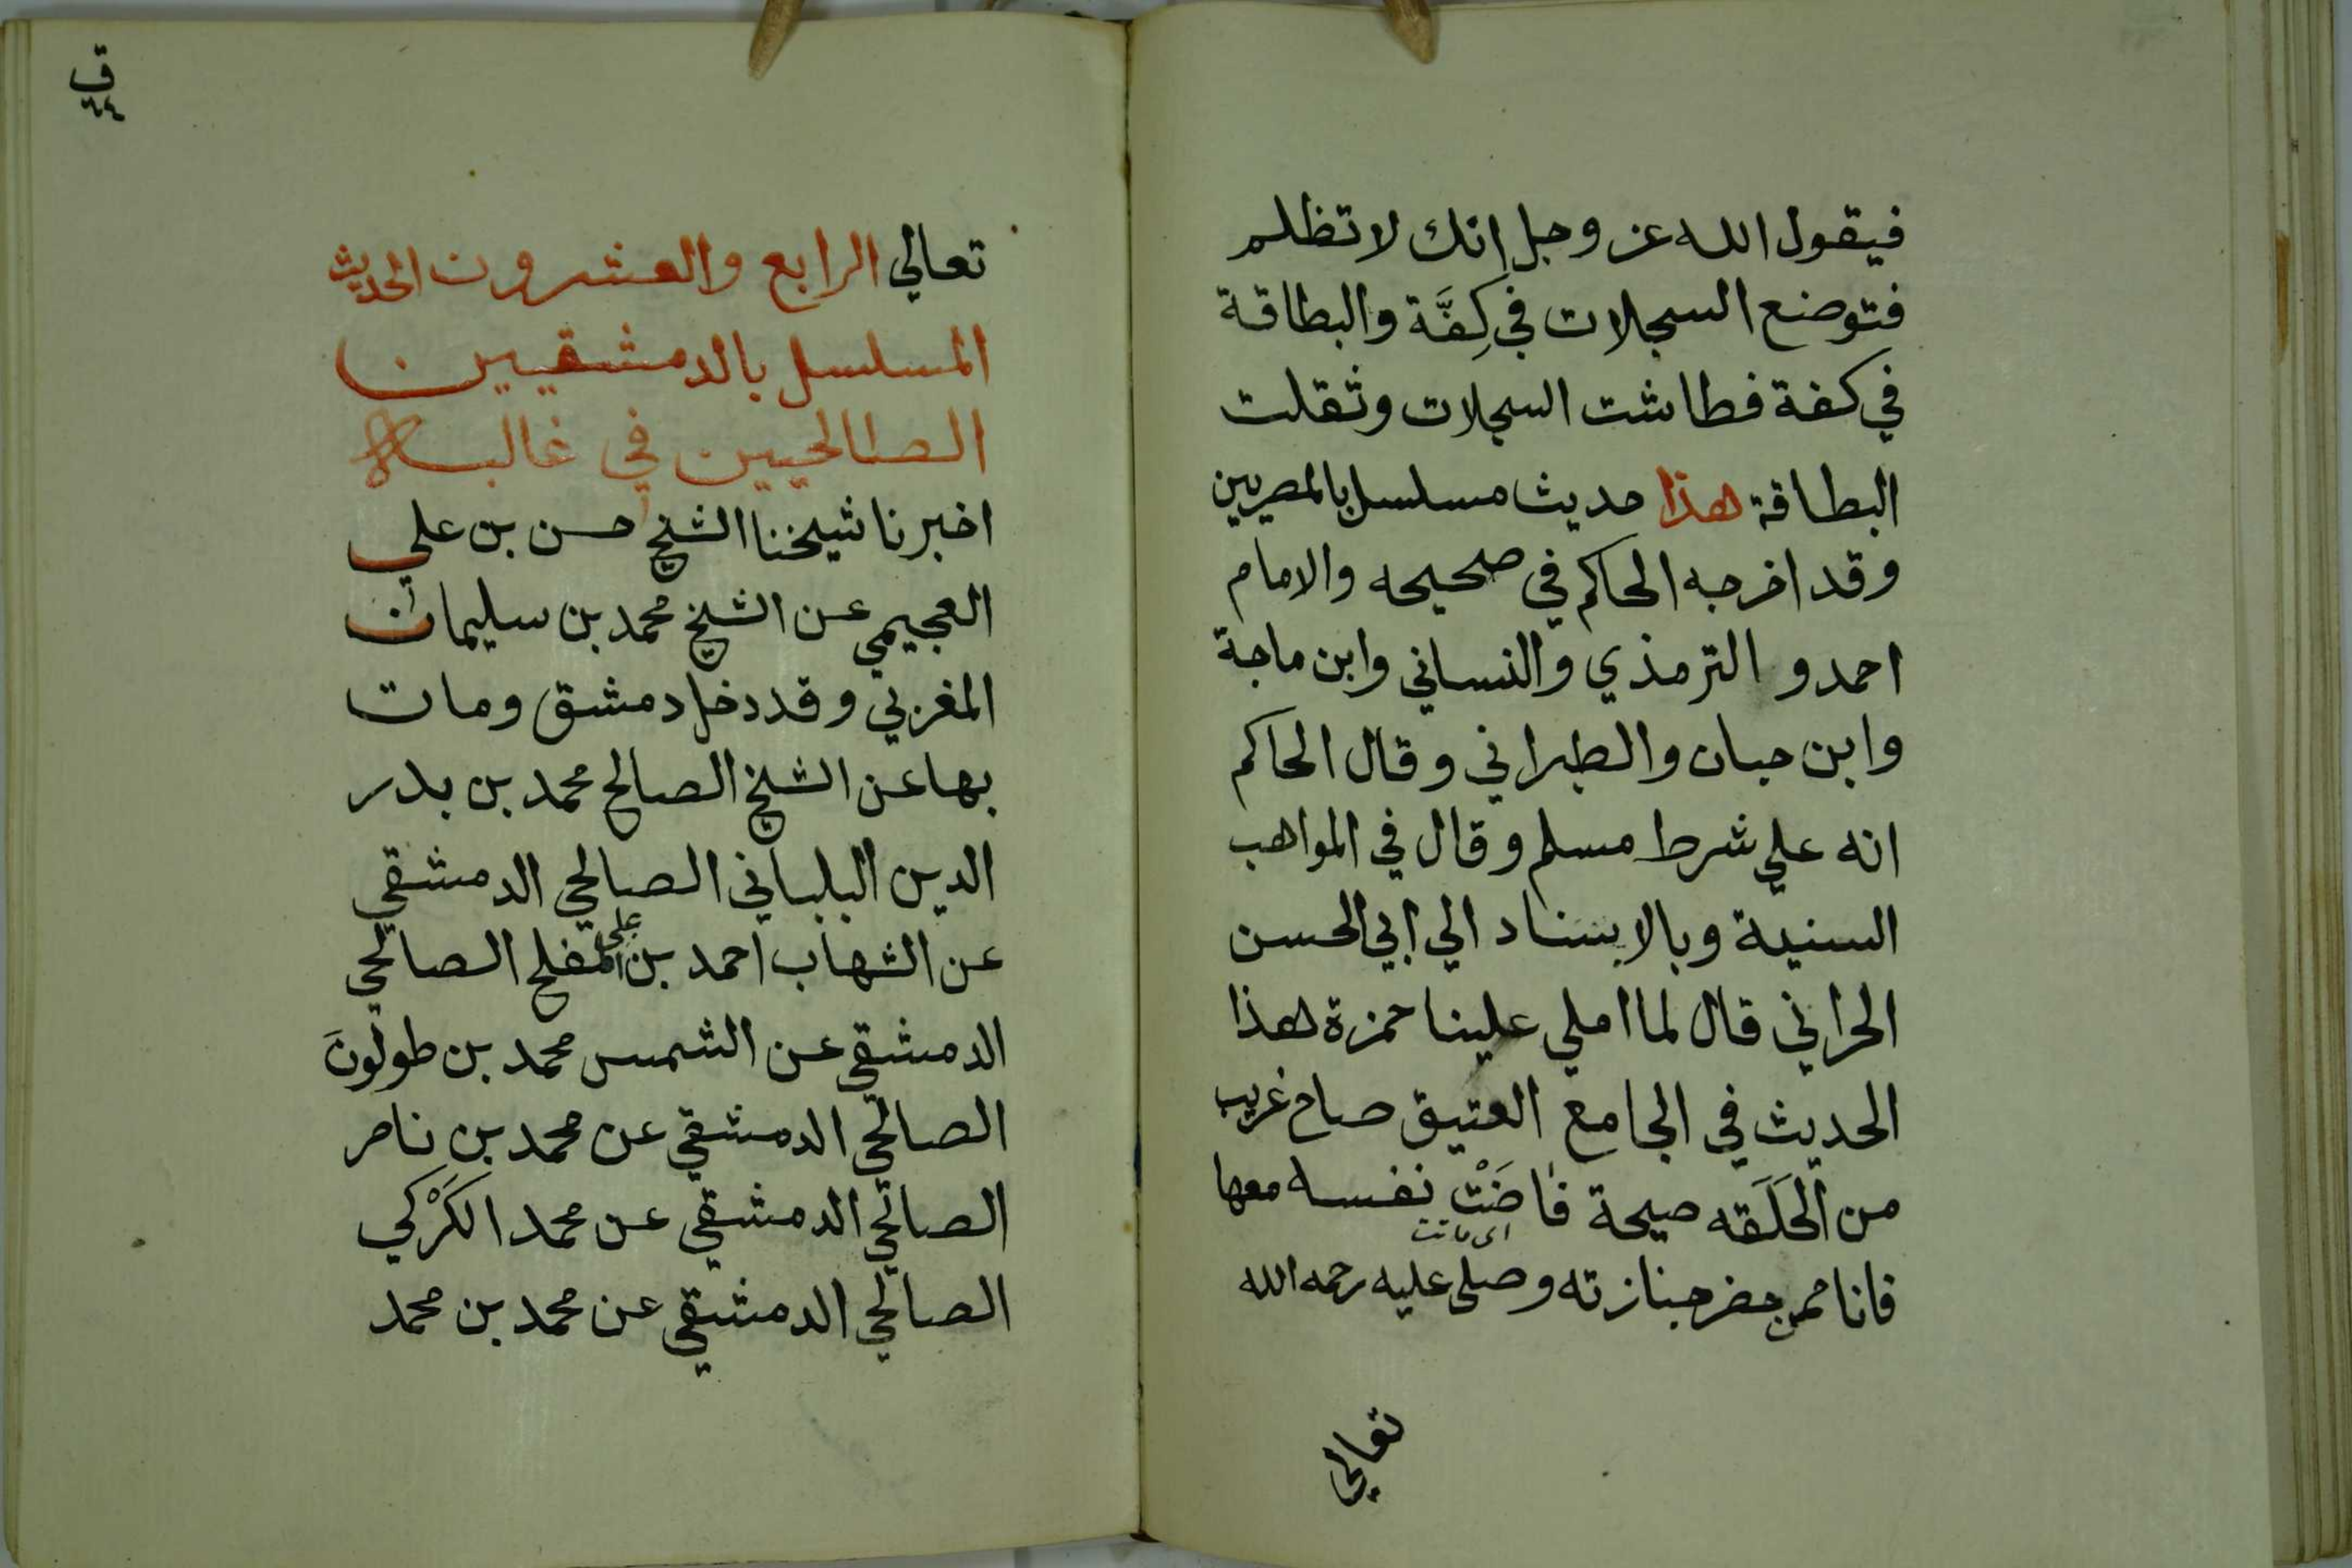 فيقول الله عز وجل انك لا تظلم
فتوضع السجلات في كِفَّة والبطاقة
في كفة فطاشت السجلات وثقلت
البطاقة هذا حديث مسلسل بالمصريين
وقد اخرجه الحاكم في صحيحه والامام
احمد و الترمذي والنساني وابن ماجة
وابن حبان والطبراني وقال الحاكم
انه علي شرط مسلم وقال في المواهب
السنية وبالاسناد الي ابي الحسن
الحراني قال لما املي علينا حمزة هذا
الحديث في الجامع العتيق صاح غريب
من الحَلَقه صيحة فاضَتْ نفسه معها
اى ماتت
فانا ممن حضر جنازته وصلى عليه رحمه الله
تعالي
ق
٦٤
تعالي الرابع والعشرون الحديث
المسلسل بالدمشقيين
الصالحيين في غالبه
اخبرنا شيخنا الشيخ حسن بن علي
العجيمي عن الشيخ محمد بن سليمان
المغربي وقد دخل دمشق ومات
بها عن الشيخ الصالح محمد بن بدر
الدين البلباني الصالحي الدمشقي
عن الشهاب احمد بن على المفلح الصالحي
الدمشقي عن الشمس محمد بن طولون
الصالحي الدمشقي عن محمد بن ناصر
الصالحي الدمشقي عن محمد الكَرْكي
الصالحي الدمشقي عن محمد بن محمد